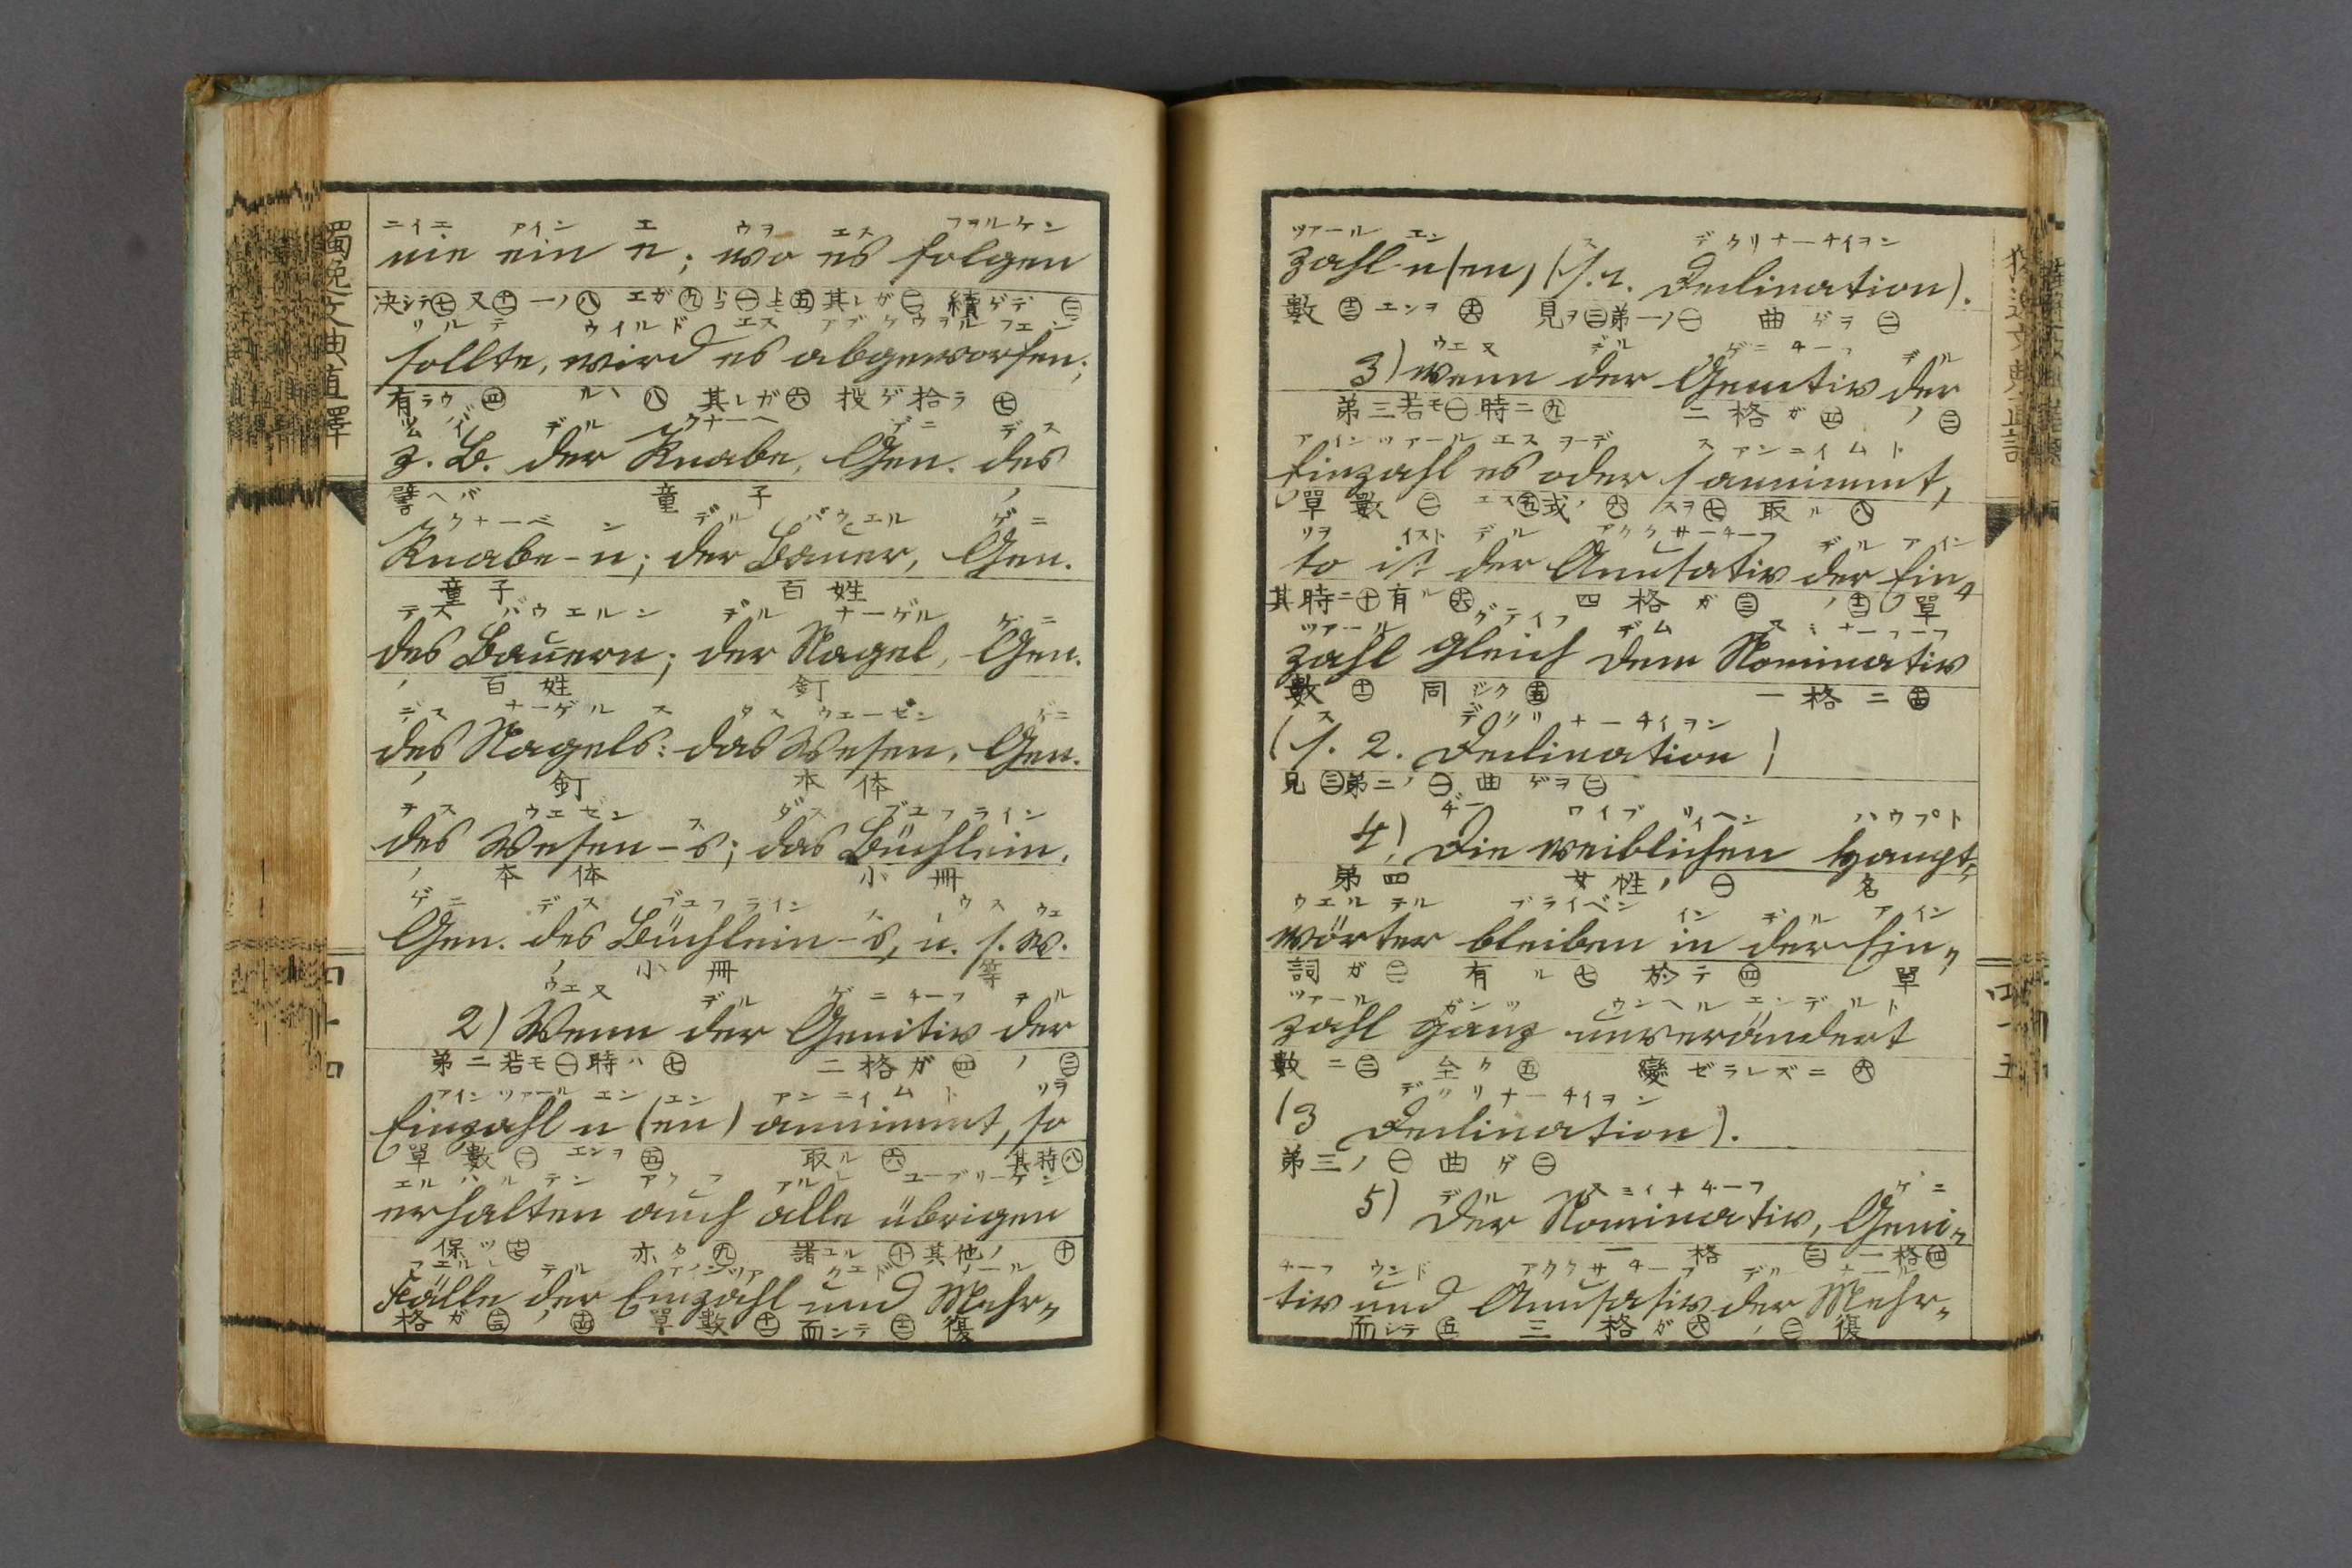 ニイエ アイン エ ウヲ エス フヲルケン
nie ein e; wo es folgen
決シテ㊆ 又㊉ 一ノ㊇ エガ㊈ 其レガ㊁ 續ゲデ ㊂
ルテ ウイルド エス アブケウヲルフエン
sollte, wird es abgeworfen;
有ラウ㊃ ルヽ㊇ 其レガ㊅ 投ゲ拾ラ㊆
デル クナーヘ ゲニ デス
z. B. der Knabe, Gen. des
譬ヘバ 童子 ノ
クナーベン デル バウエル ゲニ
Knabe-n; der Bauer, Gen.
童子 百姓
デス バウエルン デル ナーゲル ゲニ
des Bauern; der Nagel, Gen.
ノ 百姓 釘
デス ナーゲルス ダス ウエーゼン ゲニ
des Nagels: das Wesen, Gen.
ノ 釘 本体
デス ウエゼン ス ダス ブユフライン
des Wesen-s; das Büchlein,
ノ 本体 小冊
ゲニ デス ブユフライン ス ウ ス ウエ
Gen. des Büchlein-s, u. s. w.
ノ 小冊 等
ウエヌ デル ゲニチーフ デル
2) Wenn der Genitiv der
第二若モ㊀時ハ㊆ 二格ガ㊃ ノ㊂
アインツァール エン (エン アンニイムト ソヲ
Einzahl n (en) annimmt, so
單數㊁ エンヲ㊄ 取ル㊅ 其時㊇
エルハルテン アウフ アルレ ユーブリーゲン
erhalten auch alle übrigen
保ツ 亦タ㊈ 諸ユル 其他ノ㊉
フエルレ デル アインツア ウンド メール
Fälle der Einzahl und Mehr-
格ガ ノ 單數 而シテ 復
獨逸文典直譯
四十四
ツアール エン ス デクリナーチイヲン
zahl n (en) (s. 1. Declination).
數 エンヲ 見ヲ㊂第一ノ㊀ 曲ゲヲ㊁
ウエヌ デル ゲニチーフ デル
3) wenn der Genitiv der
第三若モ㊀時ニ㊈ 二格ガ㊃ ノ㊂
アインツアール エス ヲーデ ス アンニイムト
Einzahl es oder s annimmt,
單數㊁ エス㊄或ノ㊅ スヲ㊆ 取ル㊇
ソヲ イスト デル アククサーチーフ デル アイン
so ist der Accusativ der Ein-
其時ニ㊉有ル 四格ガ ノ 單
ツアール グライフ デム ヌミナーチーフ
zahl gleich dem Nominativ
數 同ジク 一格ニ
ス デクリナーチイヲン
(s. 2. Declination)
見㊂第二ノ㊀ 曲ゲヲ㊁
ヂー ワイブリイヘン ハウプト
4) Die weiblichen Haupt-
第四 女性ノ㊀ 名
ウエルテル ブライベン イン デル アイン
wörter bleiben in der Ein-
詞ガ㊁ 有ル㊆ 於テ㊃ 單
ツアール ガンツ ウンヘルエンデルト
zahl ganz unverändert
數ニ㊂ 全ク㊄ 變ゼラレズニ㊅
デクリナーチイヲン
(3 Declination).
第三ノ㊀ 曲ゲ㊁
デル ヌミイナチーフ ゲニ
5) Der Nominativ, Geni-
一格㊂ 二格㊃
チーフ ウンド アククサチーフ デル メール
tiv und Accusativ der Mehr-
而シテ㊄ 三格ガ㊅ ノ㊁ 復
四十五